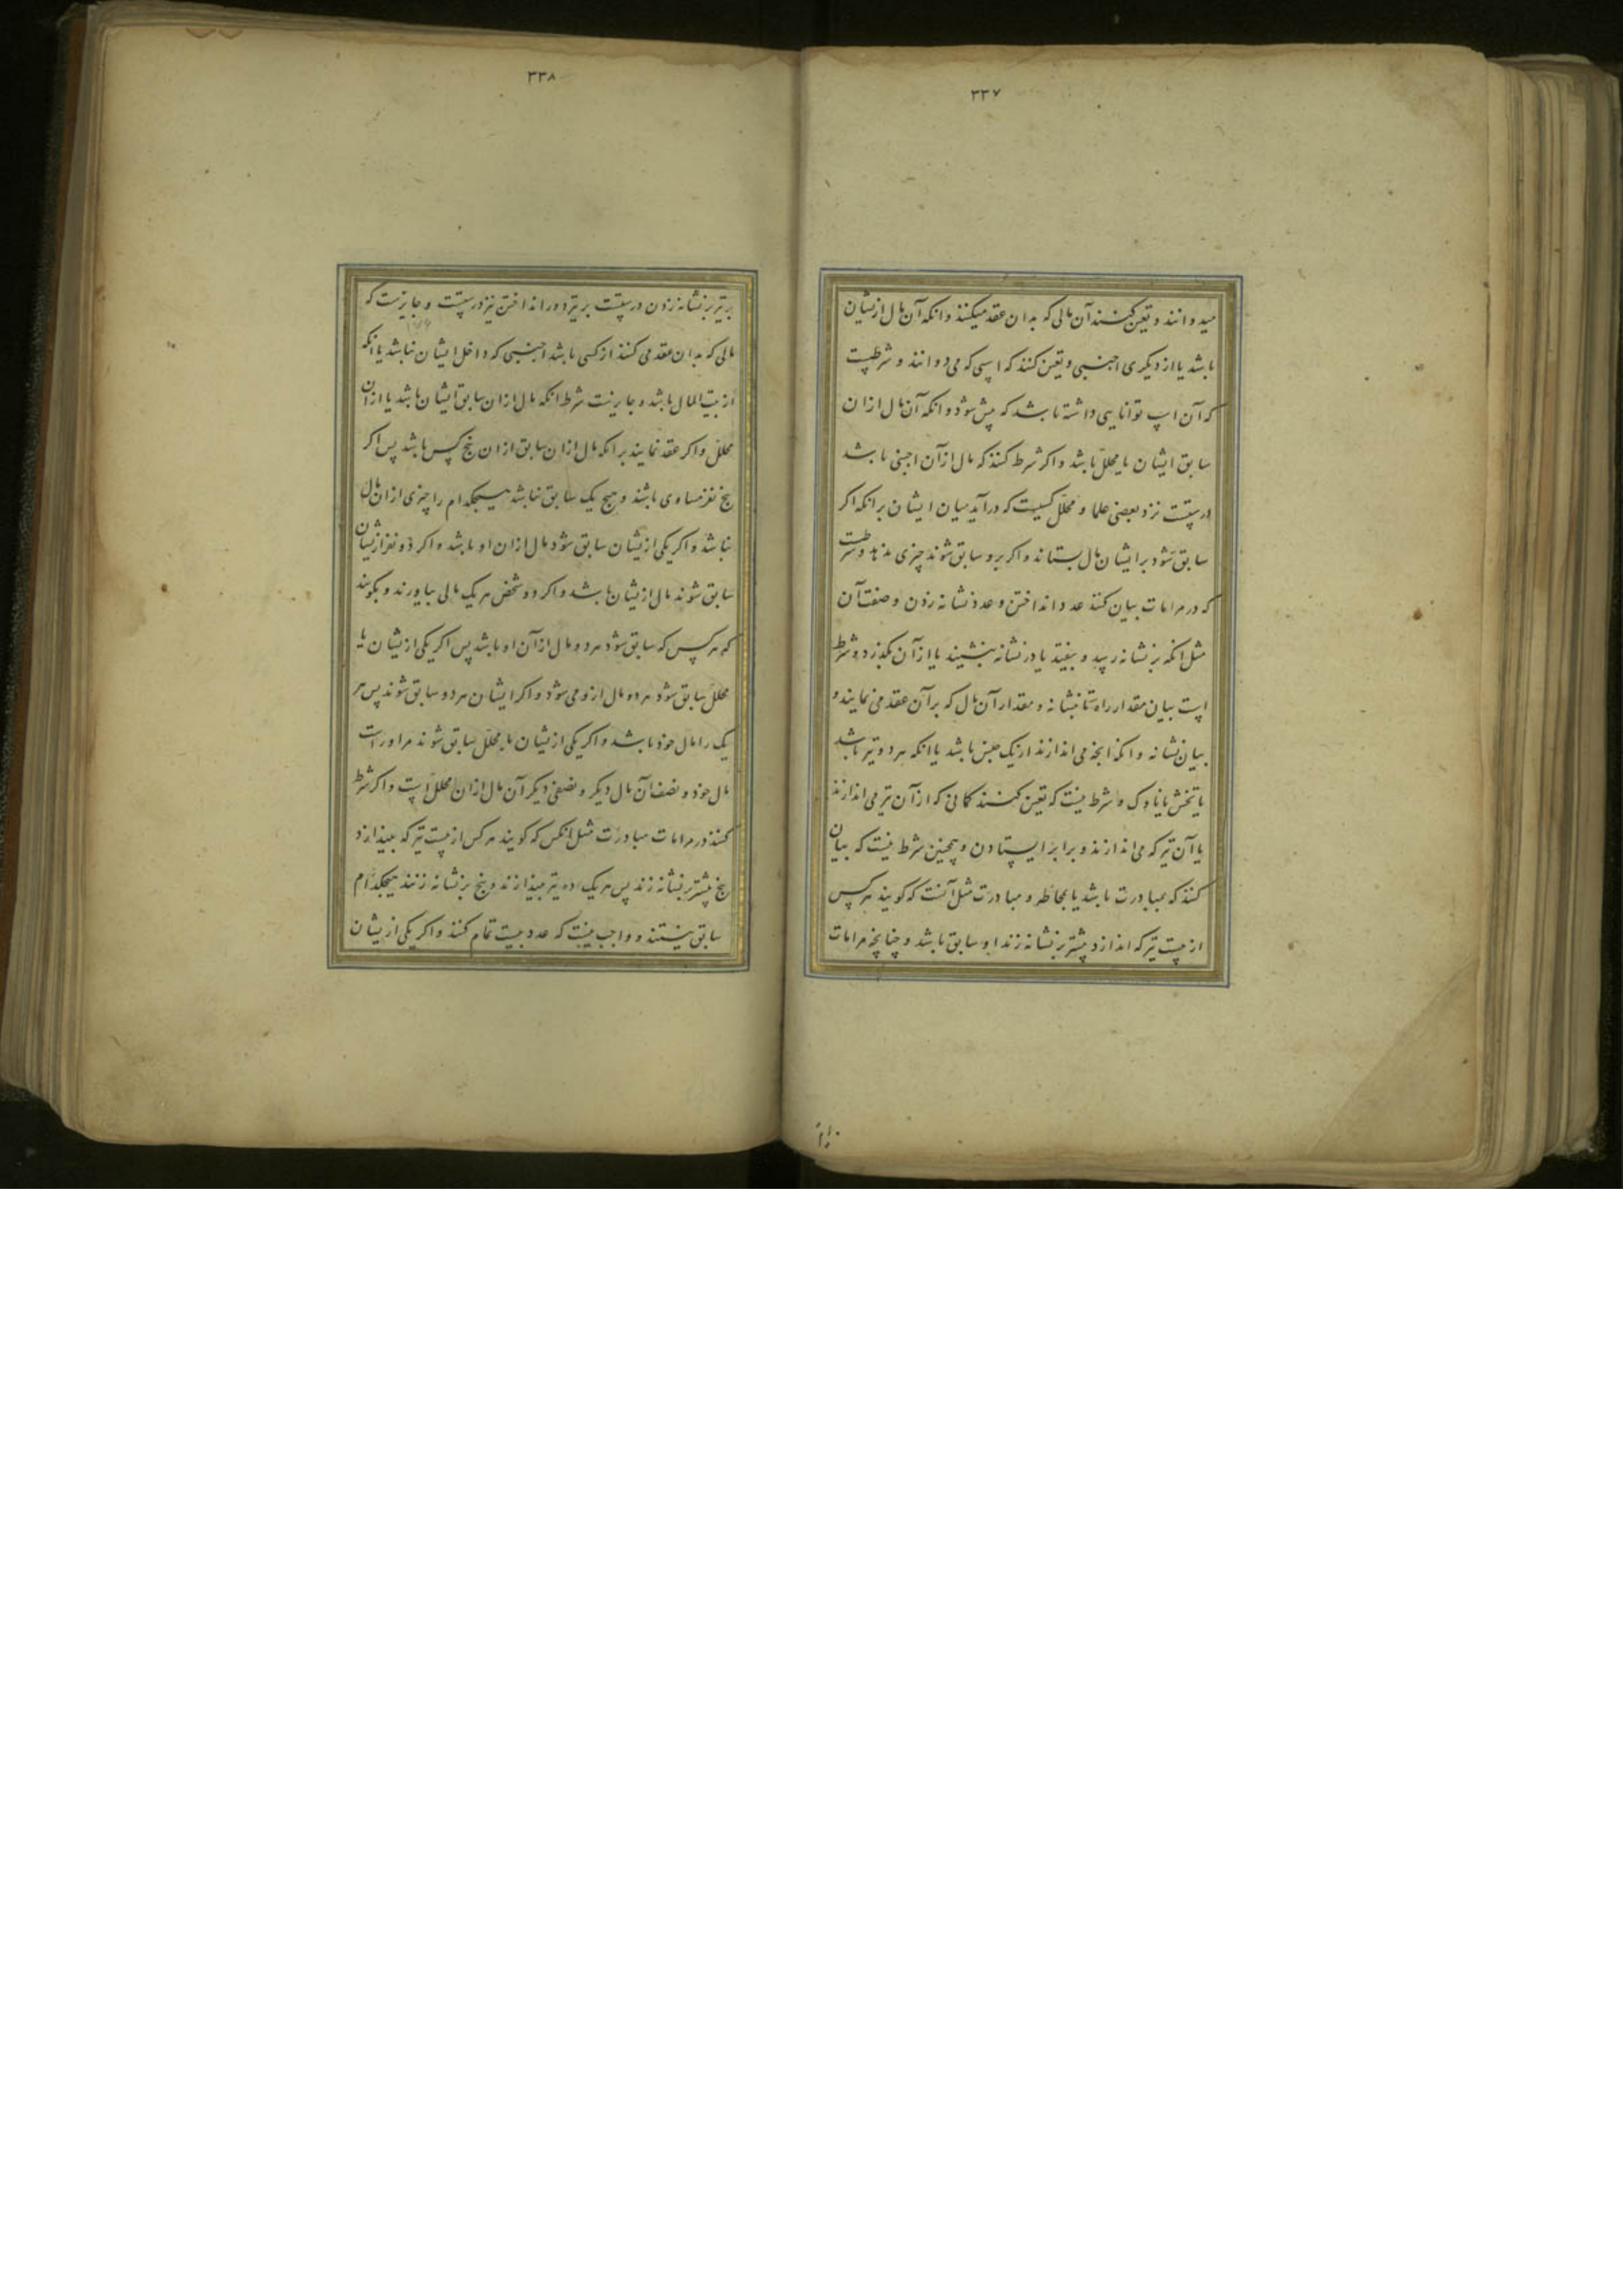 ۳۳۷
میدوانند و تعین کنند آن مالی که بدان عقد میکنند و انکه آن مال ازیشان
باشد یا از دیکری اجنبی و تعین کنند که اسپی که می دوانند و شرطست
که آن اسپ توانایی داشته باشد که پیش شود و انکه آن مال ازان
سابق ایشان یا محلل باشد و اکر شرط کنند که مال ازآن اجنبی باشد
درستست نزد بعضی علما و محلل کسیست که درآید میان ایشان برانکه اکر
سابق شود برایشان مال بستاند و اکر برو سابق شوند چیزی ندهد و شرطست
که در مرامات بیان کنند عدد انداختن و عدد نشانه زدن و صفت آن
مثل انکه بر نشانه رسد و بیفتد یا در نشانه بنشیند یا ازآن بگذرد و شرط
است بیان مقدار راه تا بنشانه و مقدار آن مال که برآن عقد می نمایند و
بیان نشانه و انکه انچه می اندازند ازیک جنس باشد یا انکه هر دو تیر باشد
یا تخش یا ناوک و شرط نیست که تعین کنند کمانی که ازآن تیر می اندازند
یا آن تیر که می اندازند و برابر ایستادن و همچنین شرط نیست که بیان
کنند که بمبادرت باشد یا بمحاطه و مبادرت مثل آنست که کویند هر کس
از بیست تیر که اندازد پیشتر بر نشانه زند او سابق باشد و چنانچه مرامات
۳۳۸
بر تیر بر نشانه زدن درستست بر تیر دور انداختن نیز درستست و جایزست که
مالی که بدان عقد می کنند از کسی باشد اجنبی که داخل ایشان نباشد یا انکه
از بیت المال باشد و جایزست شرط انکه مال ازان سابق ایشان باشد یا ازان
محلل و اکر عقد نمایند برانکه مال ازان سابق ازان پنج کس باشد پس اکر
پنج نفر مساوی باشند و هیچ یک سابق نباشد هیچکدام را چیزی ازان مال
نباشد و اکر یکی ازیشان سابق شود مال ازان او باشد و اکر دو نفر ازیشان
سابق شوند مال ازیشان باشد و اکر دو شخص هر یک مالی بیاورند و بکویند
که هر کس که سابق شود هر دو مال ازآن او باشد پس اکر یکی ازیشان یا
محلل سابق شود هر دو مال ازو می شود و اکر ایشان هر دو سابق شوند پس هر
یک را مال خود باشد و اکر یکی ازیشان با محلل سابق شوند مر اوراست
مال خود و نصف آن مال دیکر و نصفی دیکر آن مال ازان محلل است و اکر شرط
کنند در مرامات مبادرت مثل انکس که کویند هر کس از بیست تیر که بیندازد
پنج پیشتر بر نشانه زند پس هر یک ده تیر بیندازند و پنج بر نشانه زنند هیچکدام
سابق نیستند و واجب نیست که عدد بیست تمام کنند و اکر یکی ازیشان